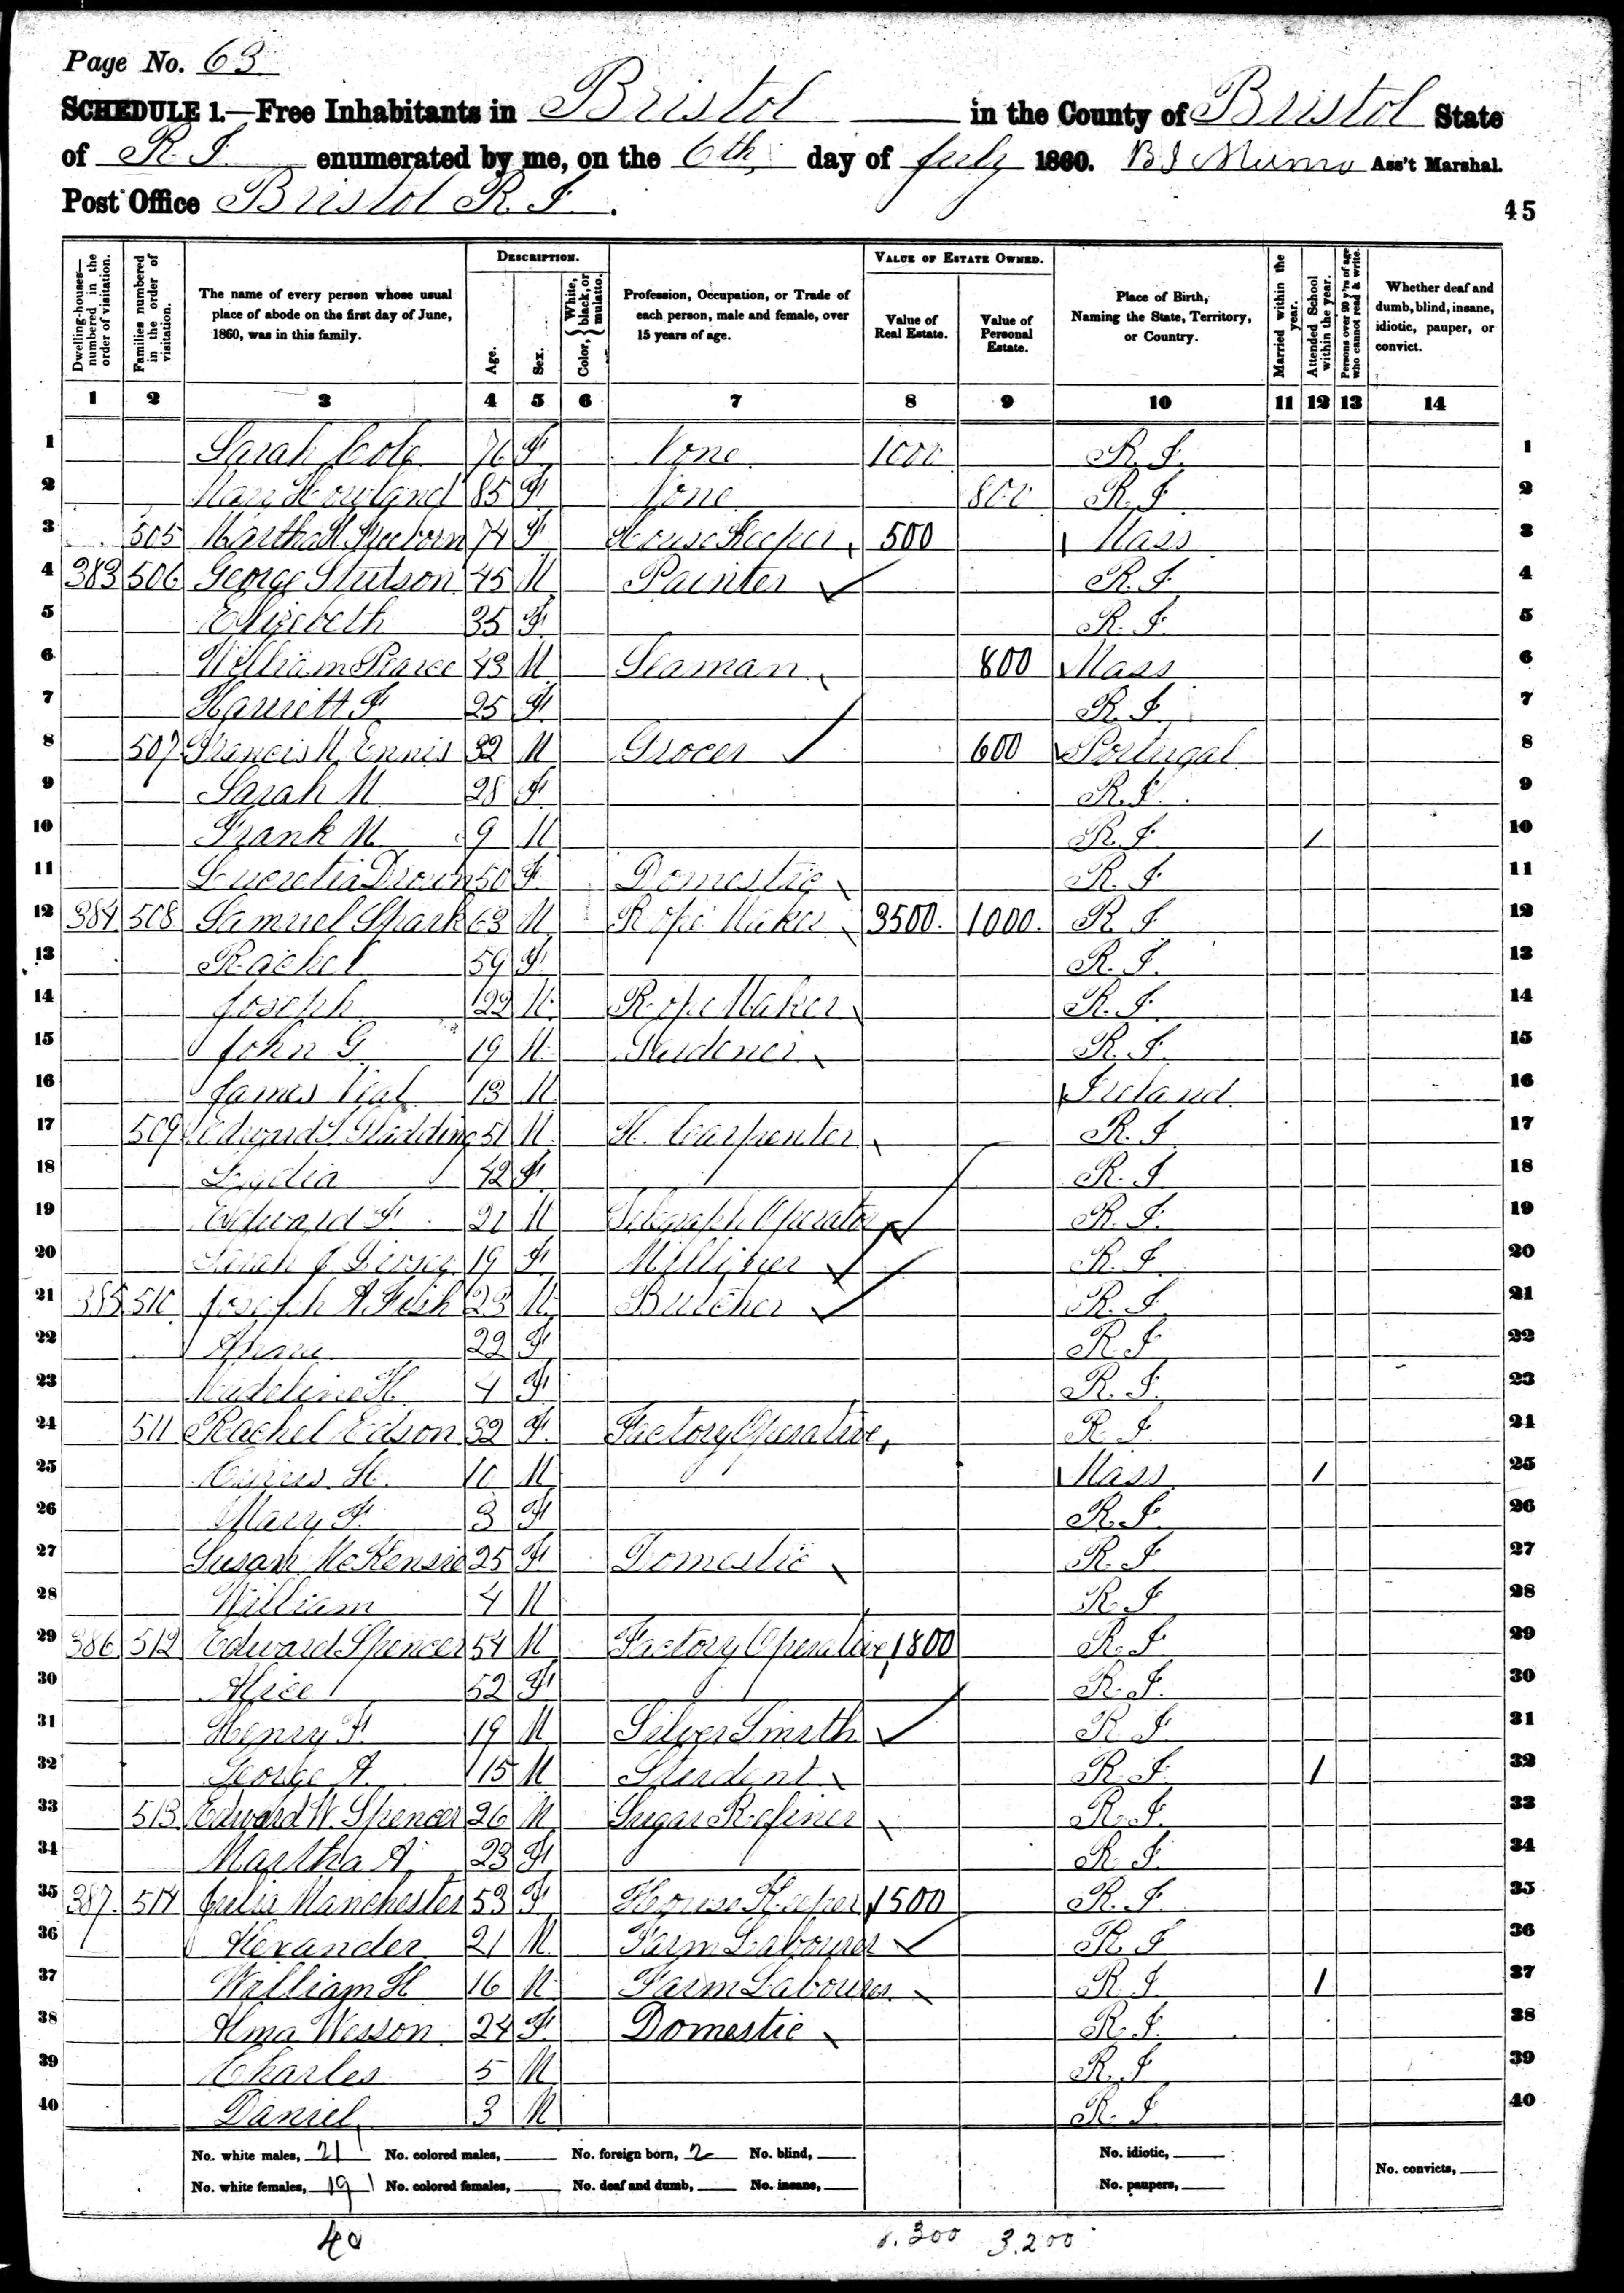 Page No. 63
SCHEDULE 1.—Free Inhabitants in Bristol in the County of Bristol State
of R.I. enumerated by me, on the 6th day of July 1860. Ass't Marshal.
Post Office Bristol R.I.
45
DESCRIPTION. VALUE OF ESTATE OWNED.
Dwelling-houses—numbered in the order of visitation.
Families numbered in the order of visitation.
The name of every person whose usual place of abode on the first day of June, 1860, was in this family.
Age.
Sex.
Color, { White, black, or mulatto.
Profession, Occupation, or Trade of each person, male and female, over 15 years of age.
Value of Real Estate.
Value of Personal Estate.
Place of Birth, Naming the State, Territory, or Country.
Married within the year.
Attended School within the year.
Persons over 20 y'rs of age who cannot read & write.
Whether deaf and dumb, blind, insane, idiotic, pauper, or convict.
1 2 3 4 5 6 7 8 9 10 11 12 13 14
1 Sarah Cole 76 F None 1000 R.I. 1
2 Mary Howland 85 F None 800 R.I. 2
3 505 Martha H Freeborn 74 F House Keeper 500 Mass 3
4 383 506 George Stutson 45 M Painter R.I. 4
5 Elizebeth 35 F R.I. 5
6 William Pearce 43 M Seaman 800 Mass 6
7 Harriett F 25 F R.I. 7
8 507 Francis M Ennis 32 M Grocer 600 Portugal 8
9 Sarah M 28 F R.I. 9
10 Frank M 9 M R.I. / 10
11 Lucretia Drown 50 F Domestic R.I. 11
12 384 508 Samuel Shark 63 M Rope Maker 3500. 1000. R.I. 12
13 Rachel 59 F R.I. 13
14 Joseph 22 M Rope Maker R.I. 14
15 John G 19 M R.I. 15
16 James 13 M Ireland 16
17 509 Edward S Gladding 51 M H. Carpenter R.I. 17
18 Lydia 42 F R.I. 18
19 Edward F. 21 M Telegraph Operator R.I. 19
20 Sarah J 19 F Milliner R.I. 20
21 385 510 Joseph A Fish 23 M Butcher R.I. 21
22 Anna 22 F R.I. 22
23 Madeline H. 4 F R.I. 23
24 511 Rachel Edson 32 F. Factory Operative R.I. 24
25 Cyrus H. 10 M Mass / 25
26 Mary F. 3 F R.I. 26
27 Susan McKensie 25 F Domestic R.I. 27
28 William 4 M R.I. 28
29 386 512 Edward Spencer 54 M Factory Operative 1800 R.I. 29
30 Alice 52 F R.I. 30
31 Henry F. 19 M Silver Smith R.I. 31
32 George A. 15 M Student R.I. / 32
33 513 Edward W. Spencer 26 M Sugar Refiner R.I. 33
34 Martha A 23 F R.I. 34
35 387. 514 Julia Manchester 53 F House Keeper 1500 R.I. 35
36 Alexander 21 M Farm Labourer R.I. 36
37 William H 16 M Farm Labourer R.I. / 37
38 Alma Wesson 24 F. Domestic R.I. 38
39 Charles 5 M R.I. 39
40 Daniel 3 M R.I. 40
No. white males, 21 No. colored males, No. foreign born, 2 No. blind, No. idiotic,
No. white females, 19 No. colored females, No. deaf and dumb, No. insane, No. paupers, No. convicts,
40 3.200